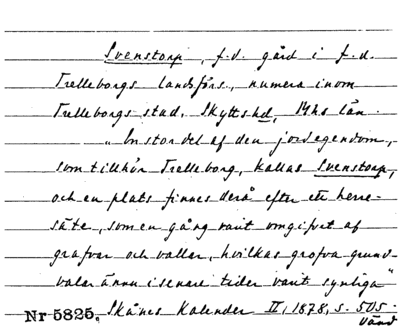 Svenstorp, f.d. gård i f.d.
Trelleborgs landsförs., numera inom
Trelleborgs stad. Skytts hd, Mhs län.
"En stor del af den jordegendom,
som tillhör Trelleborg, kallas Svenstorp,
och en plats finnes derå efter ett herre-
säte, som en gång varit omgifvet af
grafvar och vallar, hvilkas grofva grund-
valar ännu i senare tider varit synliga"
Nr 5825. Skånes Kalender II, 1878, s. 505.
Vänd